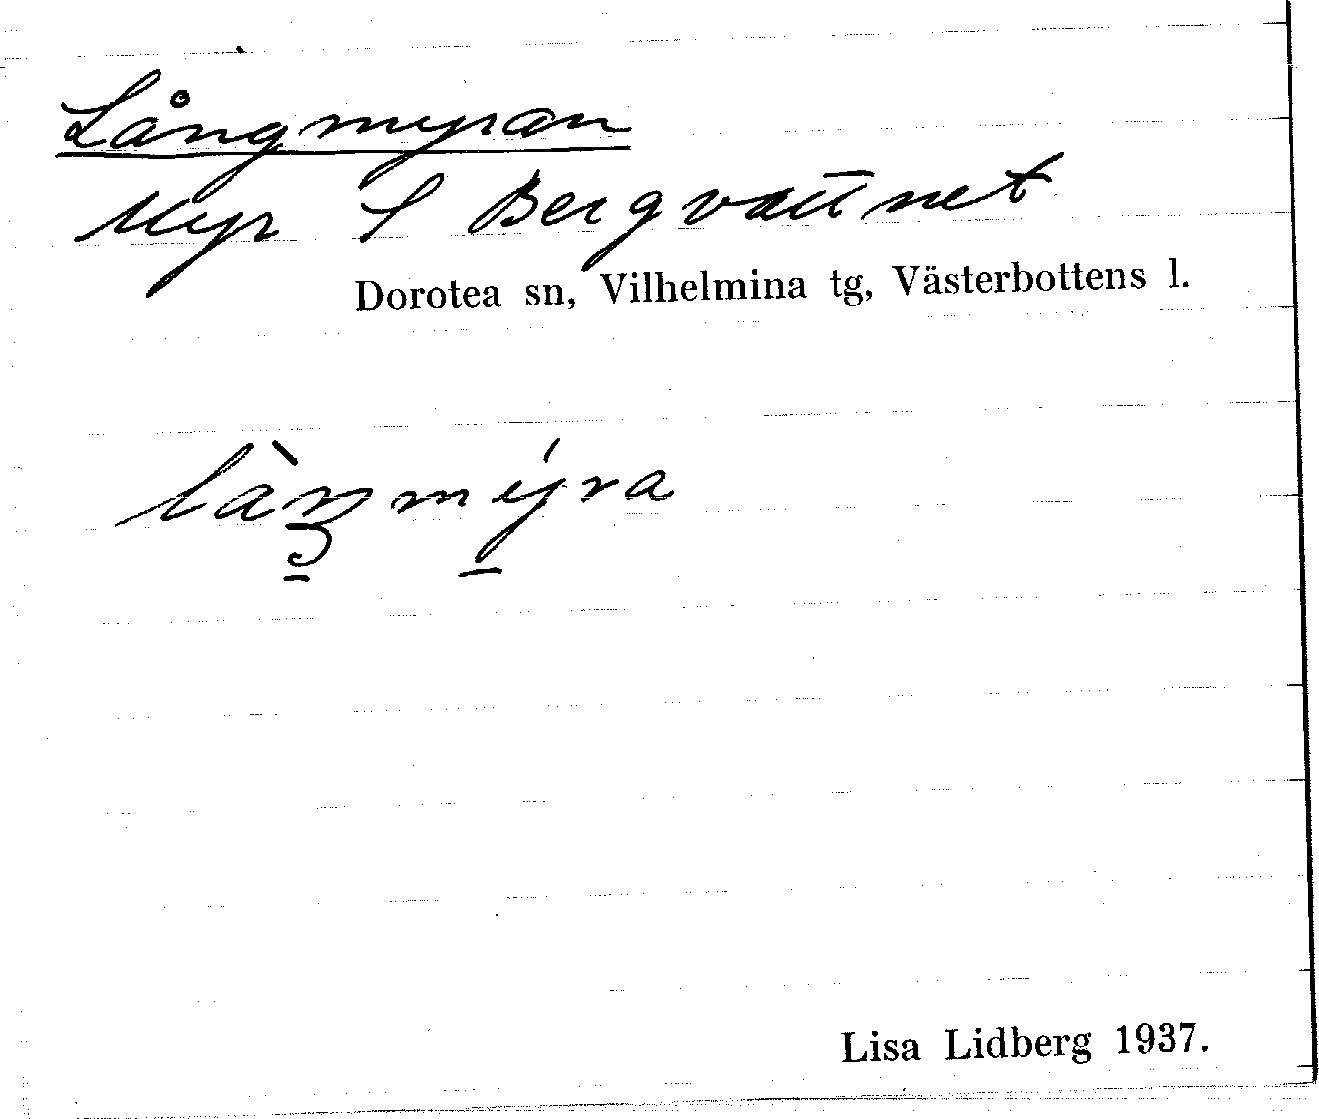 Långmyran
Myr S Bergvattnet
Dorotea sn, Vilhelmina tg, Västerbottens l.
Lisa Lidberg 1937.